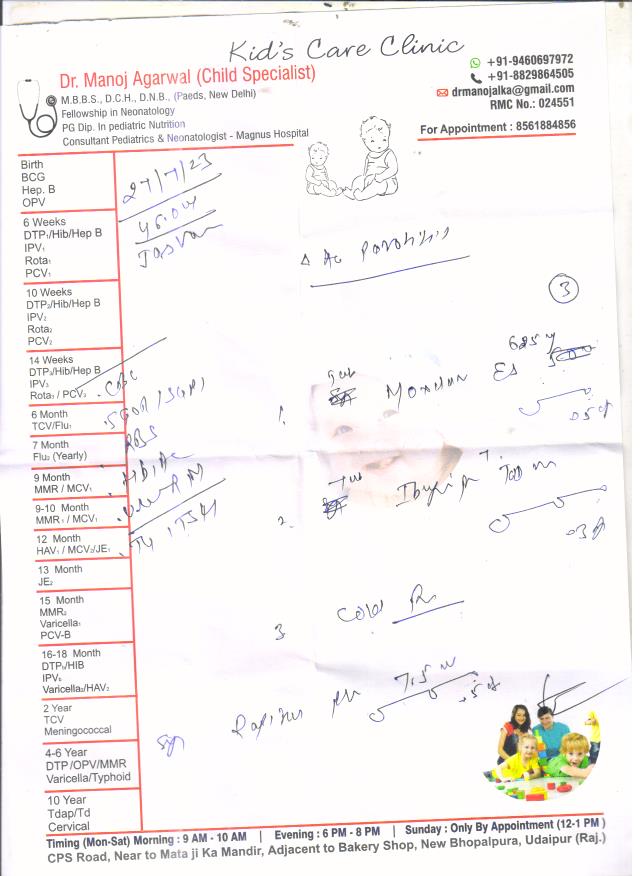 Kid's Care Clinic
Dr. Manoj Agarwal (Child Specialist)
M.B.B.S., D.C.H., D.N.B., (Paeds, New Delhi)
Fellowship in Neonatology
PG Dip. In pediatric Nutrition
Consultant Pediatrics & Neonatologist - Magnus Hospital
+91-9460697972
+91-8829864505
drmanojalka@gmail.com
RMC No.: 024551
For Appointment : 8561884856
Birth
BCG
Hep. B
OPV
27/7/23
6 Weeks
DTP₁/Hib/Hep B
IPV₁
Rota₁
PCV₁
Δ Ac
10 Weeks
DTP₂/Hib/Hep B
IPV₂
Rota₂
PCV₂
3
14 Weeks
DTP₃/Hib/Hep B
IPV₃
Rota₃ / PCV₃
CBC
625
1.
6 Month
TCV/Flu₁
SGOT/SGPT
05 d
7 Month
Flu₂ (Yearly)
RBS
9 Month
MMR / MCV₁
HbA1c
9-10 Month
MMR₁ / MCV₁
2.
Tab
03 d
12 Month
HAV₁ / MCV₂/JE₁
T4, TSH
13 Month
JE₂
15 Month
MMR₂
Varicella₁
PCV-B
3
Cold
16-18 Month
DTP₁/HIB
IPV₄
Varicella₂/HAV₂
2 Year
TCV
Meningococcal
Syp
7.5
5 d
4-6 Year
DTP /OPV/MMR
Varicella/Typhoid
10 Year
Tdap/Td
Cervical
Timing (Mon-Sat) Morning : 9 AM - 10 AM | Evening : 6 PM - 8 PM | Sunday : Only By Appointment (12-1 PM )
CPS Road, Near to Mata ji Ka Mandir, Adjacent to Bakery Shop, New Bhopalpura, Udaipur (Raj.)